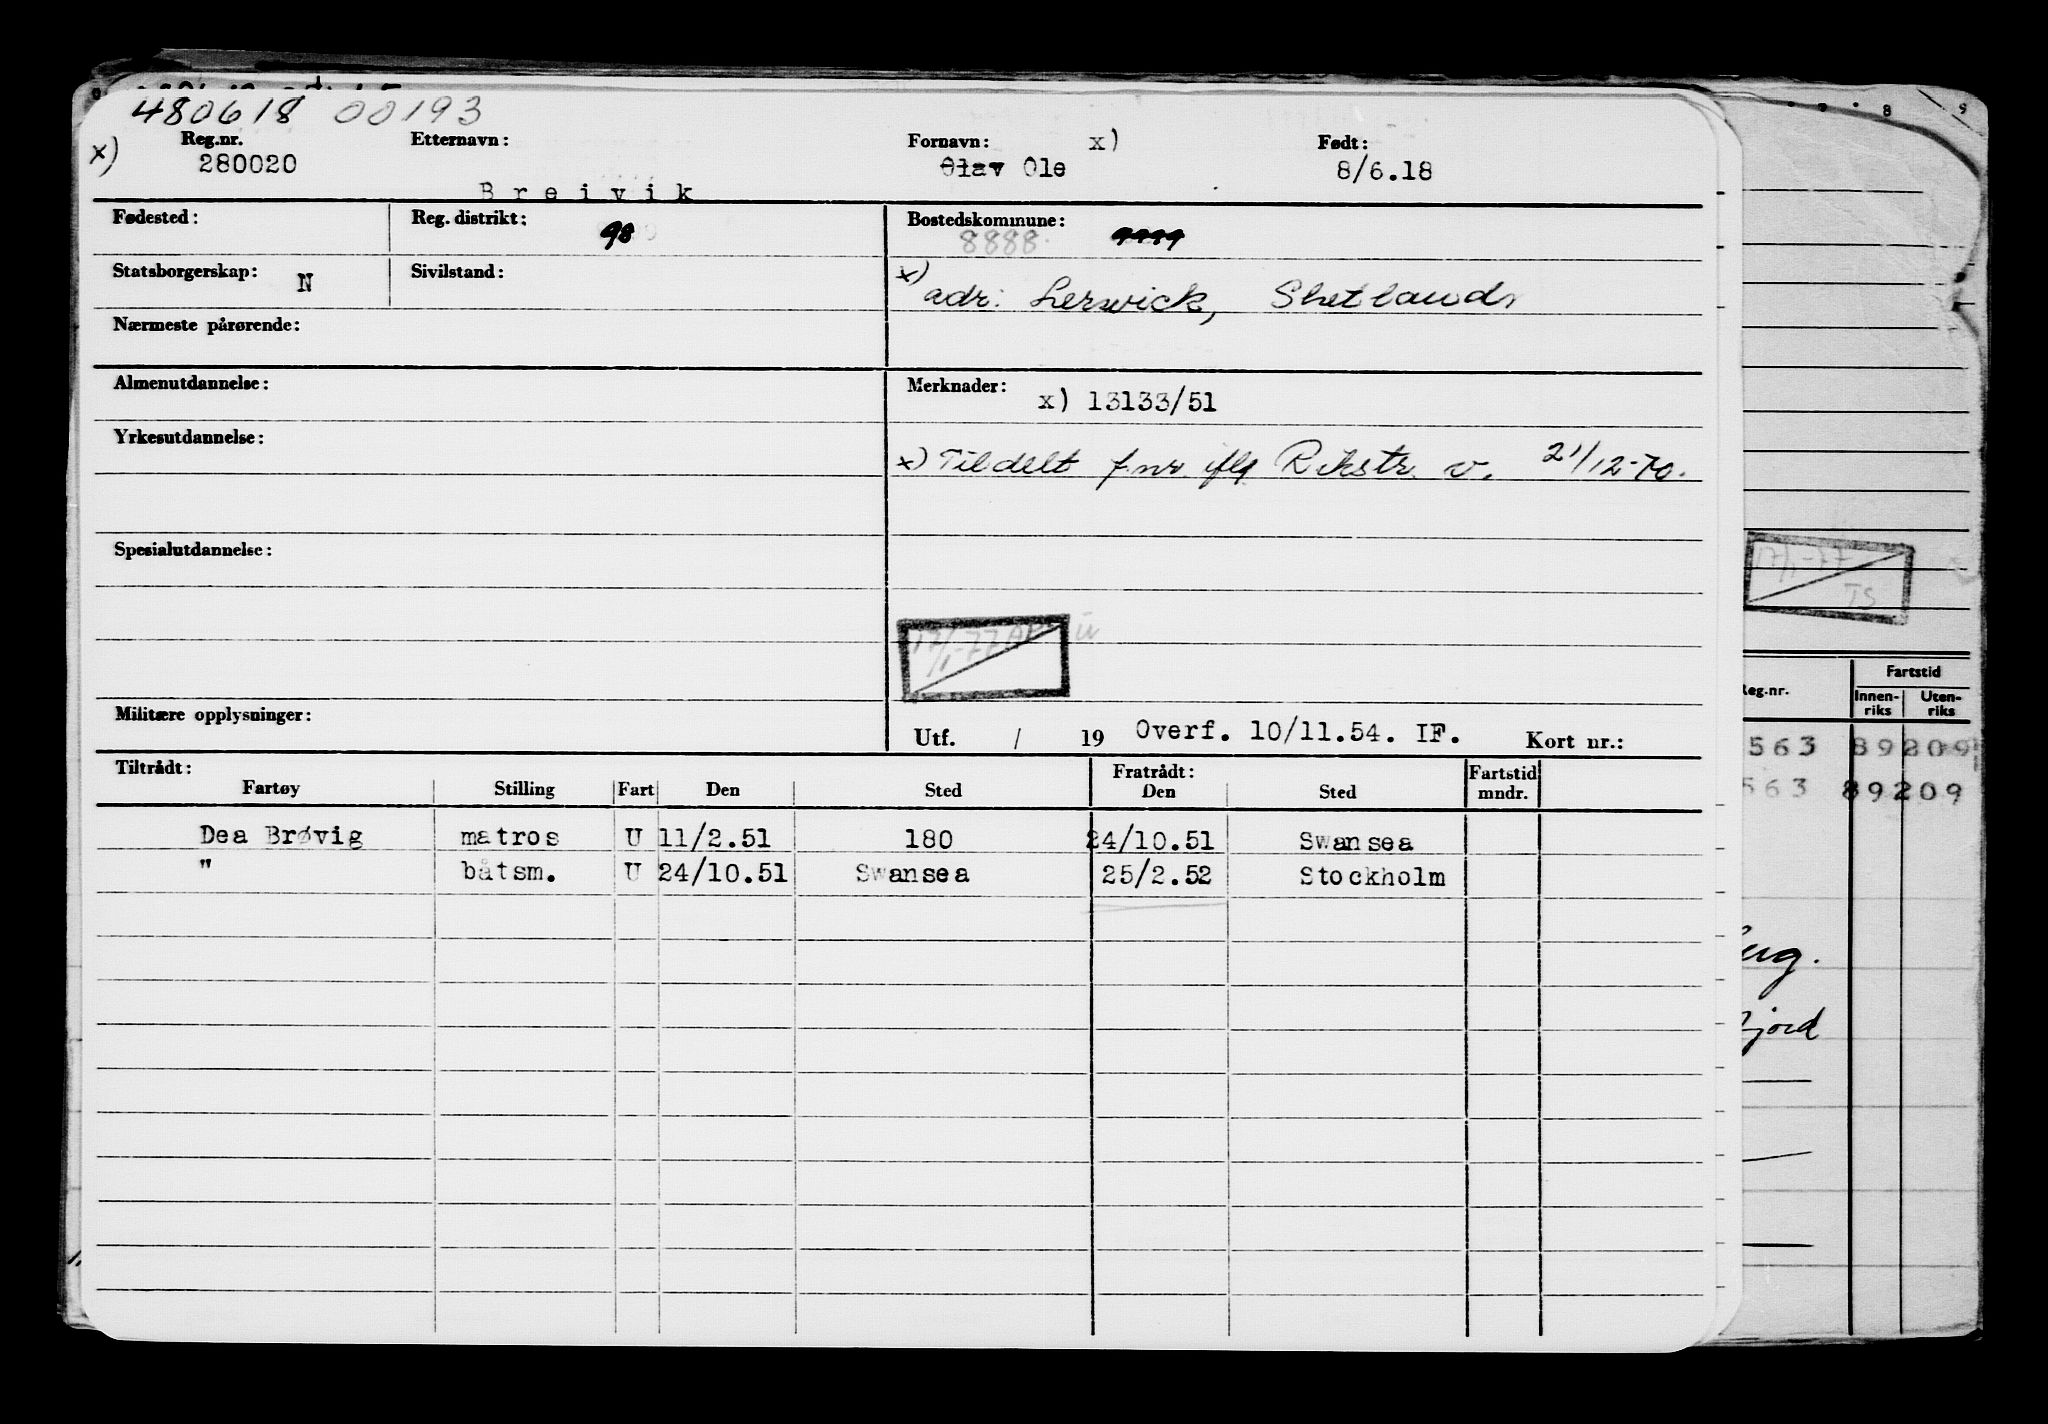 480618 00193
x) Reg.nr. Etternavn: Fornavn: x) Født:
280020 Breivik Olav Ole 8/6.18
Fødested: Reg. distrikt: 98 Bostedskommune: 8888
Statsborgerskap: N Sivilstand: x) adr: Lerwick, Shetland
Nærmeste pårørende:
Almenutdannelse: Merknader: x) 13133/51
Yrkesutdannelse: x) Tildelt f.nr. iflg Rikstr. v. 21/12-70.
Spesialutdannelse:
17/1-77
Militære opplysninger: Utf. / 19 Overf. 10/11.54. IF. Kort nr.:
Tiltrådt: Fratrådt: Fartstid mndr.
Fartøy Stilling Fart Den Sted Den Sted
Dea Brøvig matros U 11/2.51 180 24/10.51 Swansea
" båtsm. U 24/10.51 Swansea 25/2.52 Stockholm
8 9
17/1-77
TS
Reg.nr. Fartstid
Innen-riks Uten-riks
563 89209
563 89209
fjord